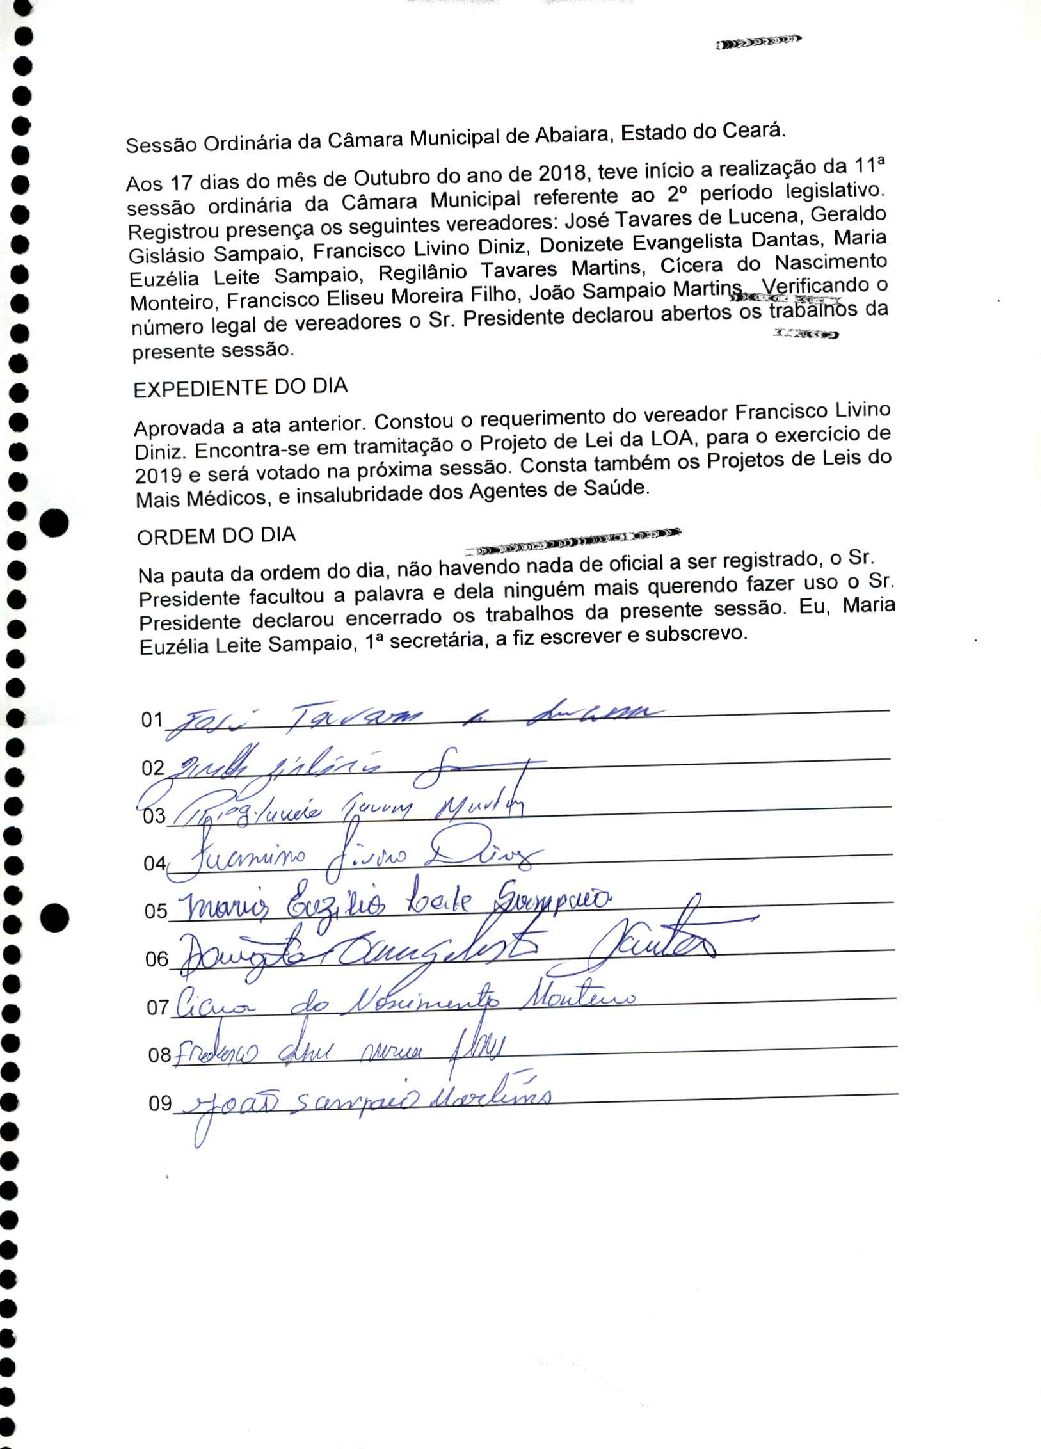 Sessão Ordinária da Câmara Municipal de Abaiara, Estado do Ceará.
Aos 17 dias do mês de Outubro do ano de 2018, teve início a realização da 11ª
sessão ordinária da Câmara Municipal referente ao 2º período legislativo.
Registrou presença os seguintes vereadores: José Tavares de Lucena, Geraldo
Gislásio Sampaio, Francisco Livino Diniz, Donizete Evangelista Dantas, Maria
Euzélia Leite Sampaio, Regilânio Tavares Martins, Cícera do Nascimento
Monteiro, Francisco Eliseu Moreira Filho, João Sampaio Martins. Verificando o
número legal de vereadores o Sr. Presidente declarou abertos os trabalhos da
presente sessão.
EXPEDIENTE DO DIA
Aprovada a ata anterior. Constou o requerimento do vereador Francisco Livino
Diniz. Encontra-se em tramitação o Projeto de Lei da LOA, para o exercício de
2019 e será votado na próxima sessão. Consta também os Projetos de Leis do
Mais Médicos, e insalubridade dos Agentes de Saúde.
ORDEM DO DIA
Na pauta da ordem do dia, não havendo nada de oficial a ser registrado, o Sr.
Presidente facultou a palavra e dela ninguém mais querendo fazer uso o Sr.
Presidente declarou encerrado os trabalhos da presente sessão. Eu, Maria
Euzélia Leite Sampaio, 1ª secretária, a fiz escrever e subscrevo.
01 José Tavares de Lucena
02
03 Tavares Martins
04 Francisco Livino Diniz
05 Maria Euzélia Leite Sampaio
06 Donizete Evangelista Dantas
07 Cícera do Nascimento Monteiro
08 Francisco
09 João Sampaio Martins